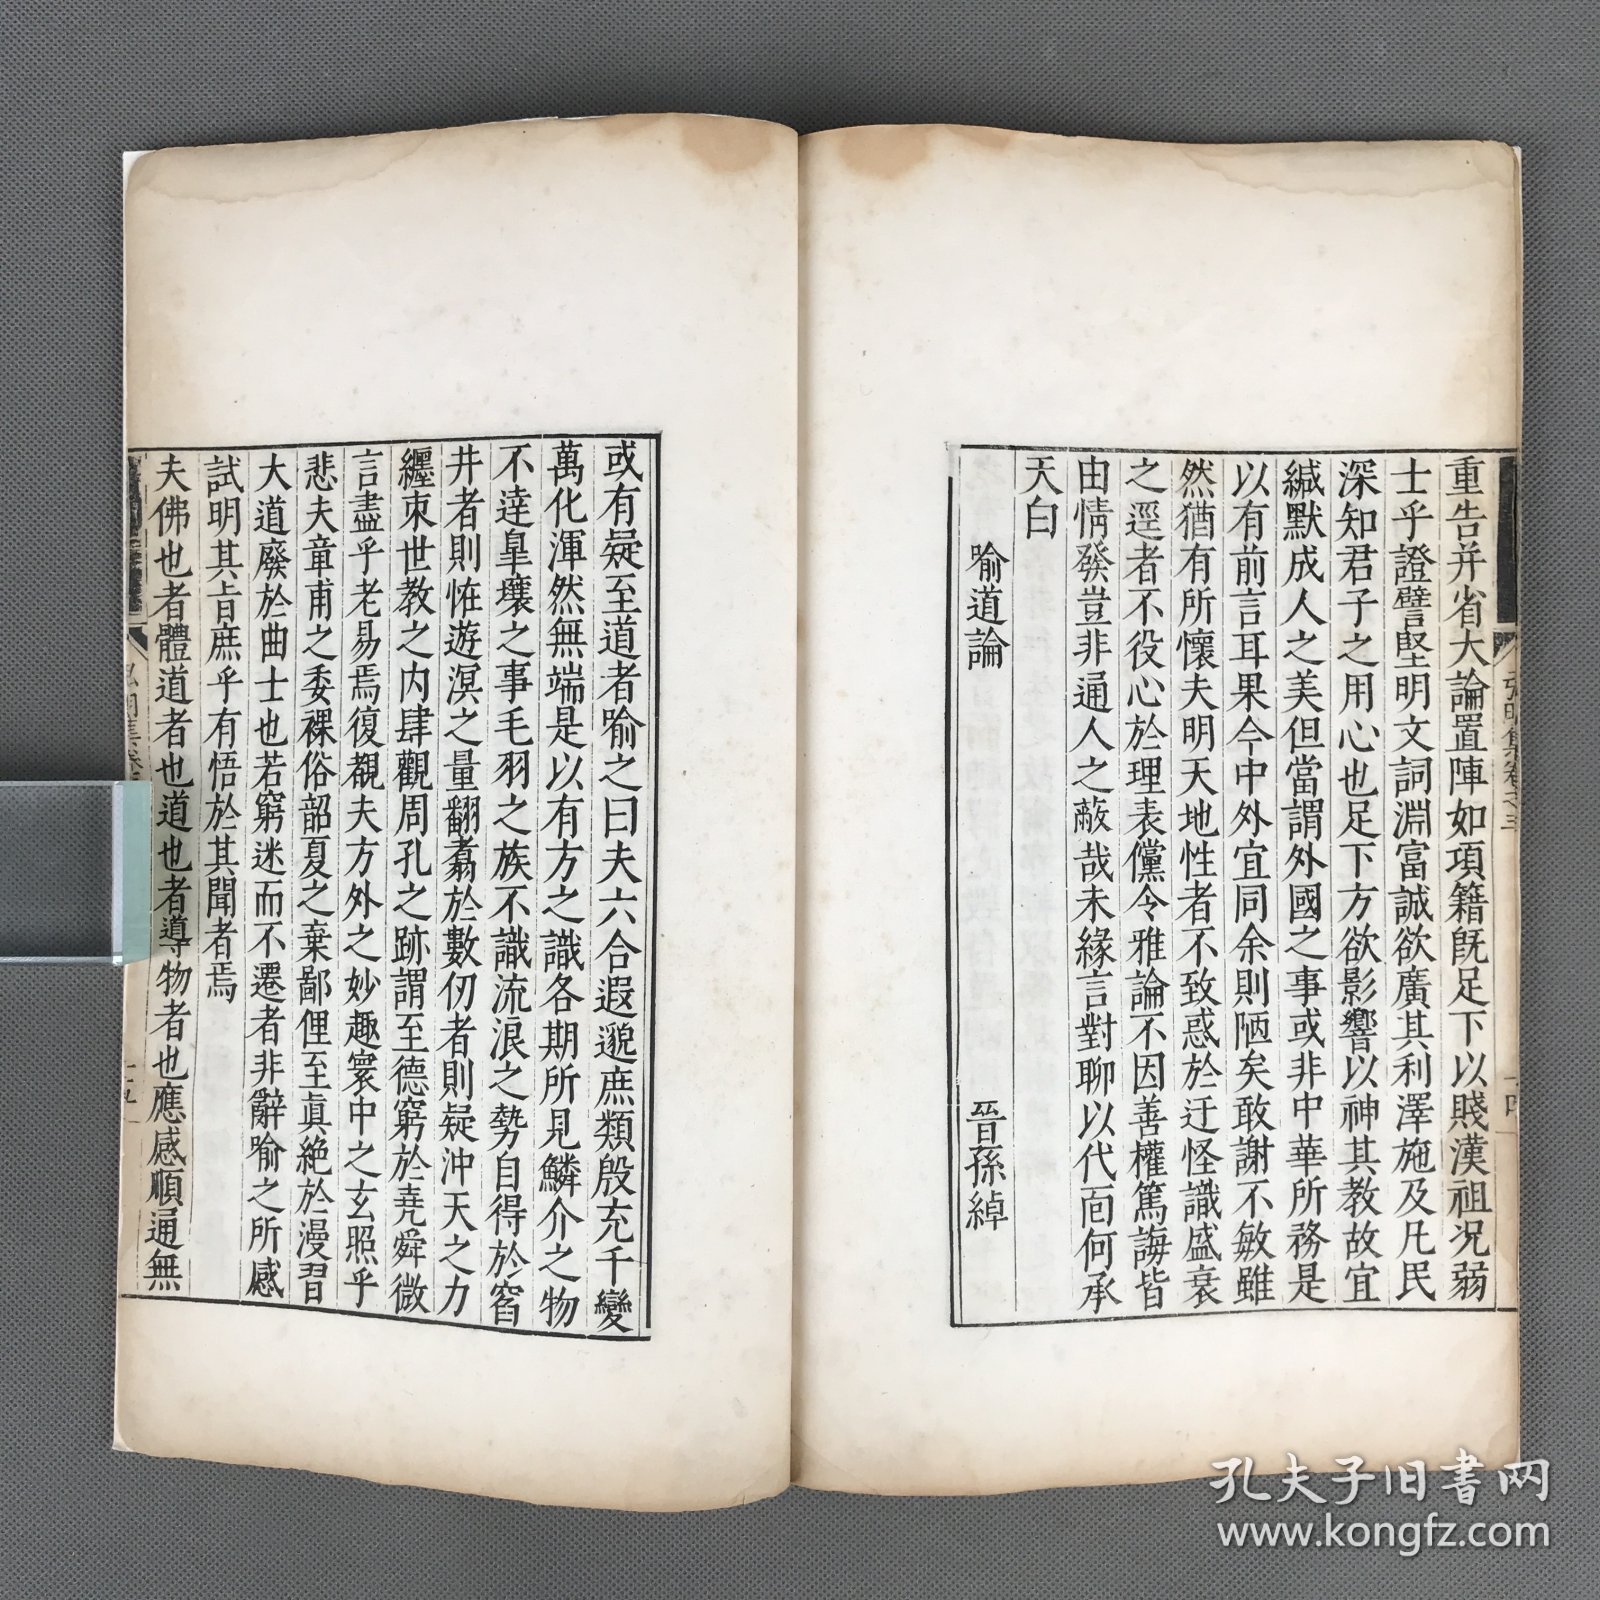 重告并省大論置陣如項籍旣足下以賤漢祖况弱
士乎證譬堅明文詞淵富誠欲廣其利澤施及凡民
深知君子之用心也足下方欲影響以神其教故宜
緘默成人之美但當謂外國之事或非中華所務是
以有前言耳果今中外宜同余則陋矣敢謝不敏雖
然猶有所懷夫明天地性者不致惑於迂怪識盛衰
之逕者不役心於理表儻令雅論不因善權篤誨皆
由情發豈非通人之蔽哉未緣言對聊以代面何承
天白
喻道論 晉孫綽
或有疑至道者喻之曰夫六合遐邈庶類殷充千變
萬化渾然無端是以有方之識各期所見鱗介之物
不達皐壤之事毛羽之族不識流浪之勢自得於窞
井者則恠遊溟之量翻翥於數仞者則疑沖天之力
纒束世教之内肆觀周孔之跡謂至德窮於堯舜微
言盡乎老易焉復覩夫方外之妙趣寰中之玄照乎
悲夫章甫之委裸俗韶夏之棄鄙俚至眞絶於漫習
大道廢於曲士也若窮迷而不遷者非辭喻之所感
試明其旨庶乎有悟於其聞者焉
夫佛也者體道者也道也者導物者也應感順通無
弘明集卷之三
孔夫子旧书网
www.kongfz.com